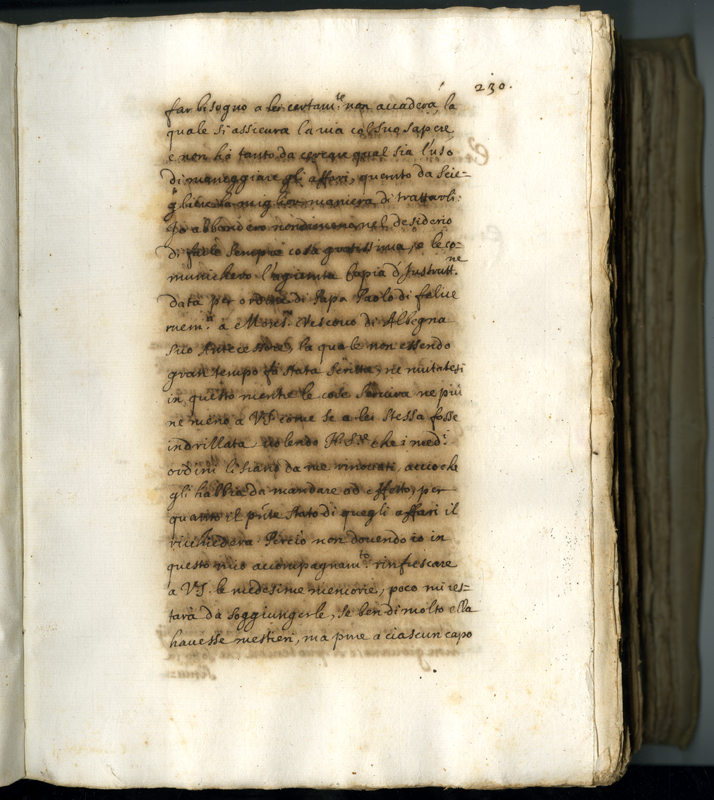 230.
far bisogno a lei certam.te non accaderà, la
quale si assicura la via col suo sapere
e non hà tanto da cercare qual sia l'uso
di maneggiare gli affari, quanto da scie-
gliere la miglior maniera di trattarli.
Io abbonderò nondimeno nel desiderio
di farle sempre cosa gratissima, e le co-
munichero l'agiunta Copia d'Instrutt.ne
data per ordine di Papa Paolo di felice
mem.a à Mons.r Vescovo di Albegna
suo Antecessore, la quale non essendo
gran tempo fà stata scritta, ne mutatesi
in questo mentre le cose servirà ne più
ne meno a VS. come se a lei stessa fosse
indrillata, volendo N. S.re che i med.i
ordini li siano da me rinovati, accioche
gli habbia da mandare ad effetto, per
quanto il pnte stato di quegli affari il
richiederà. Perciò non dovendo io in
questo mio accompagnam.to rinfrescare
a VS. le medesime memorie, poco mi res-
tarà da soggiungerle, se ben di molto ella
havesse mestieri, ma pure a ciascun capo